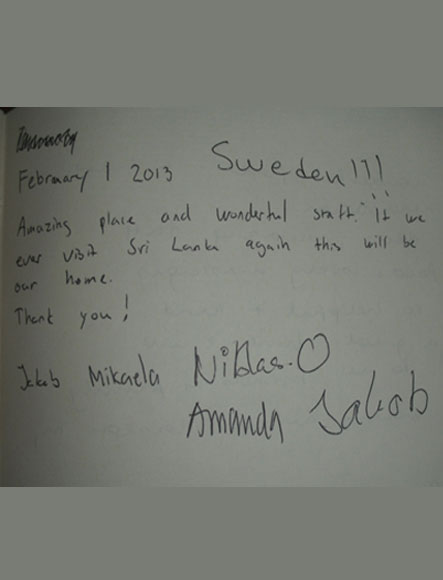 February 1 2013 Sweden!!!
Amazing place and wonderful staff. If we
ever visit Sri Lanka again this will be
our home.
Thank you!
Jakob Mikaela Niklas.O
Amanda Jakob